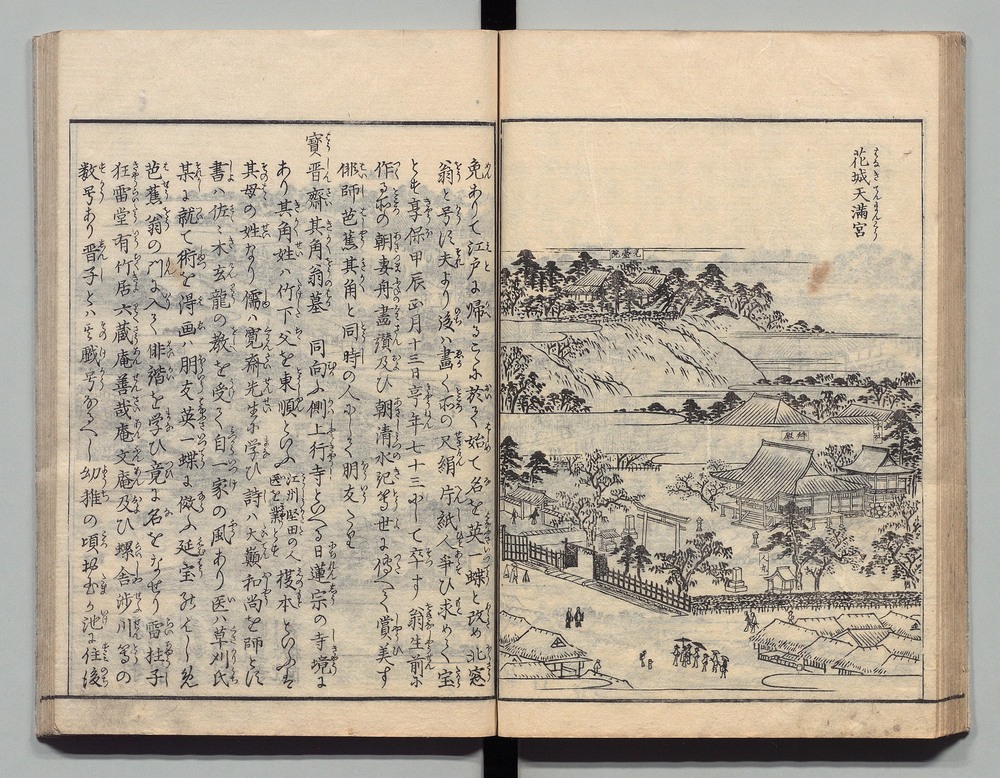 花城天満宮
元書院
拝殿
免ありて江戸に帰るこゝに於て始て名を英一蝶と改め北窓
翁と号す夫より後ハ畫く所の又絹片紙人争ひ求めて宝
とす享保甲辰正月十三日享年七十三にして卒す翁生前に
作る所の朝妻舟畫讃及ひ朝清水記等世に傳へて賞美す
俳師芭蕉其角と同時の人にして朋友たり
寶晋齋其角翁墓 同向ふ側上行寺といへる日蓮宗の寺境に
あり其角姓ハ竹下父を東順といふ江州堅田の人医を業とす榎本といふは
其母の姓なり儒ハ寛斎先生に学ひ詩ハ大巓和尚を師とし
書ハ佐々木玄龍の教を受て自一家の風あり医ハ草刈氏
某に就て術を得画ハ朋友英一蝶に倣ふ延宝の
芭蕉翁の門に入て俳諧を学ひ竟に名をなせり雷柱子
狂雷堂有竹居六蔵庵善哉庵文庵及ひ螺舎渉川等の
数号あり晋子とハ其戯号なるへし幼稚の頃
池に住後